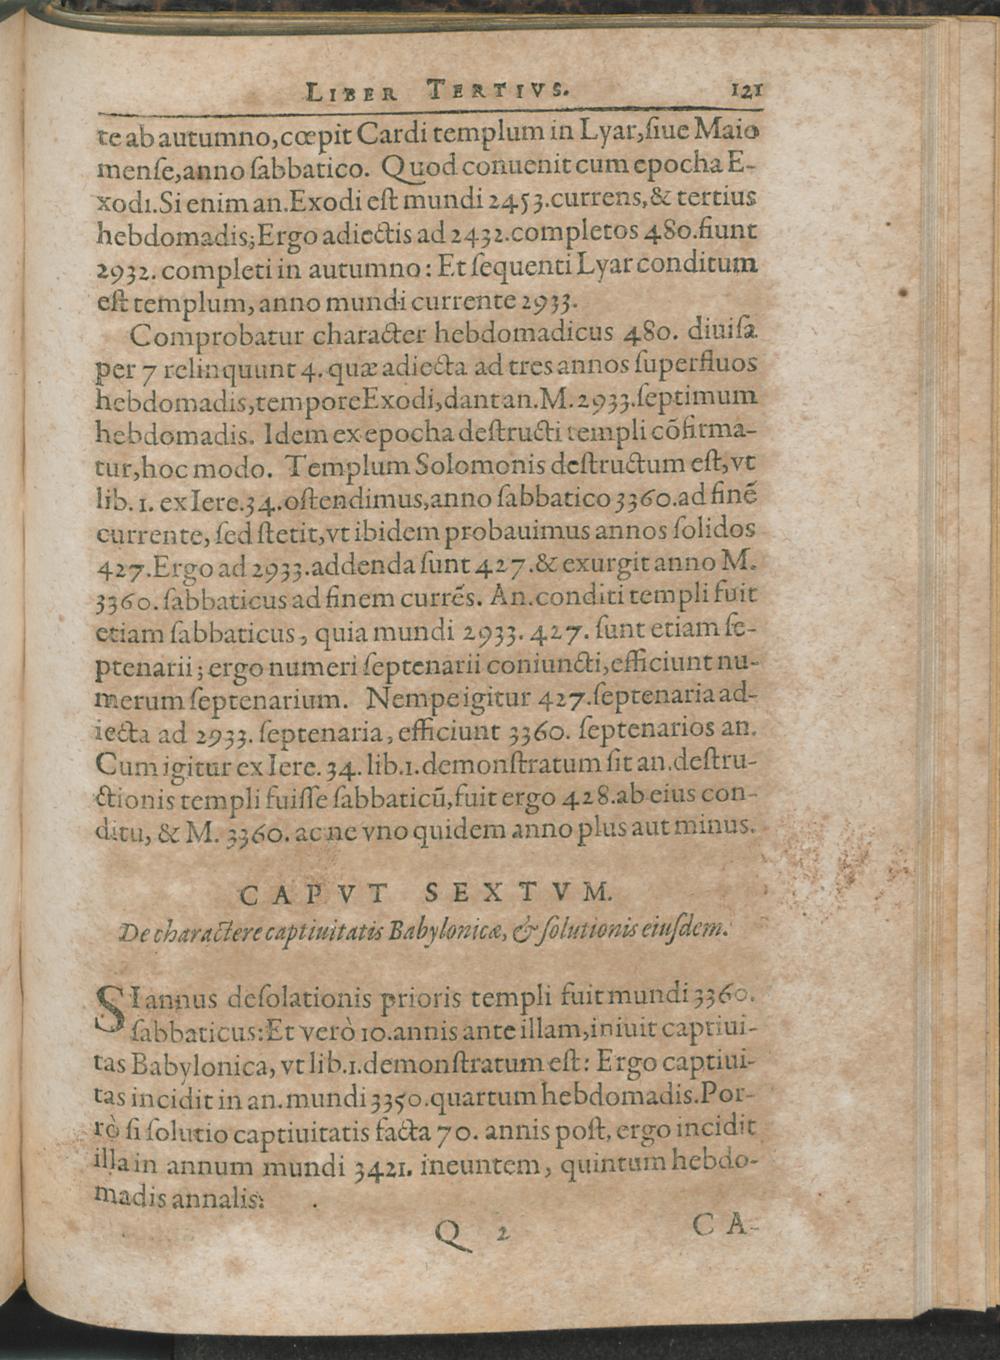 LIBER TERTIVS. 121
te ab autumno, cœpit Cardi templum in Lyar, ſiue Maio
menſe, anno ſabbatico. Quod conuenit cum epocha E-
xodi. Si enim an. Exodi eſt mundi 2453. currens, & tertius
hebdomadis; Ergo adiectis ad 2432. completos 480. fiunt
2932. completi in autumno: Et ſequenti Lyar conditum
eſt templum, anno mundi currente 2933.
Comprobatur character hebdomadicus 480. diuiſa
per 7 relinquunt 4. quæ adiecta ad tres annos ſuperfluos
hebdomadis, tempore Exodi, dant an. M. 2933. ſeptimum
hebdomadis. Idem ex epocha deſtructi templi cõfirma-
tur, hoc modo. Templum Solomonis deſtructum eſt, vt
lib. 1. ex Iere. 34. oſtendimus, anno ſabbatico 3360. ad finẽ
currente, ſed ſtetit, vt ibidem probauimus annos ſolidos
427. Ergo ad 2933. addenda ſunt 427. & exurgit anno M.
3360. ſabbaticus ad finem currẽs. An. conditi templi fuit
etiam ſabbaticus, quia mundi 2933. 427. ſunt etiam ſe-
ptenarii; ergo numeri ſeptenarii coniuncti, efficiunt nu-
merum ſeptenarium. Nempe igitur 427. ſeptenaria ad-
iecta ad 2933. ſeptenaria, efficiunt 3360. ſeptenarios an.
Cum igitur ex Iere. 34. lib. 1. demonſtratum ſit an. deſtru-
ctionis templi fuiſſe ſabbaticũ, fuit ergo 428. ab eius con-
ditu, & M. 3360. ac ne vno quidem anno plus aut minus.
CAPVT SEXTVM.
De charactere captiuitatis Babylonicæ, & ſolutionis eiuſdem.
SI annus deſolationis prioris templi fuit mundi 3360.
ſabbaticus: Et verò 10. annis ante illam, iniuit captiui-
tas Babylonica, vt lib. 1. demonſtratum eſt: Ergo captiui-
tas incidit in an. mundi 3350. quartum hebdomadis. Por-
rò ſi ſolutio captiuitatis facta 70. annis poſt, ergo incidit
illa in annum mundi 3421. ineuntem, quintum hebdo-
madis annalis:
Q 2 CA-